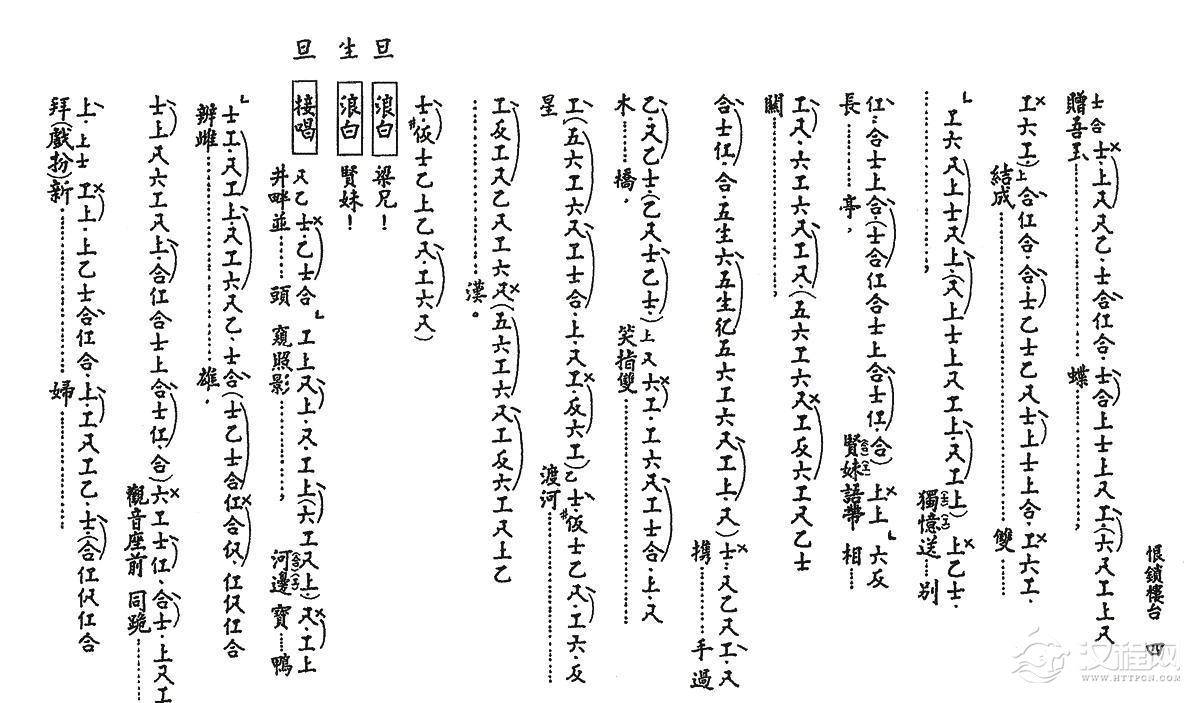 恨鎖樓台 四
士合士·上尺尺乙·士合仜合·士合上士上尺工·(六尺工上尺
贈吾玉……蝶……,
工六工)上合仜合·合士乙士乙尺士上士上合·工六工·
結成……雙……
工六尺上士尺上·(尺上士上尺工上·尺工上)上乙士·
……,獨憶送……别
仜·合士上合(士合仜合士上合士仜·合)上上六反
長……亭,賢妹語帶 相……
工尺·六工六尺工尺·(五六工六尺工反六工尺乙士
關……,
合士仜·合·五生六五生五六工六尺工上·尺)士·尺乙尺工·尺
攜……手過
乙·尺乙士(乙尺士乙士·)上尺六工·工六尺工士合·上·尺
木……橋,笑指雙……
工(五六工六尺工士合·上·尺工·反六工)乙士·仮士乙尺·工六·反
星……渡河……
工反工尺乙尺工六尺(五六工六尺工反六工尺上乙
……漢。
士·仮士乙上乙尺·工六尺)
旦 浪白 梁兄!
生 浪白 賢妹!
旦 接唱 尺乙士·乙士合工上尺上·尺·工上(六工尺上)尺·工上
井畔並……頭 窺照影……,河邊寶……鴨
士工·尺工上尺工六尺乙·士合(士乙士合仜合仅·仜仅仜合
辨雌……雄.
士上尺六工尺上·合仜合士上合士仜·合)六工士仜·合士·上尺工
觀音座前 同跪……
上·上士工上·上乙士合仜合·上·工尺工乙·士·(合仜仅仜合
拜(戲扮)新……婦……
汉程网
WWW.HTTPCN.COM